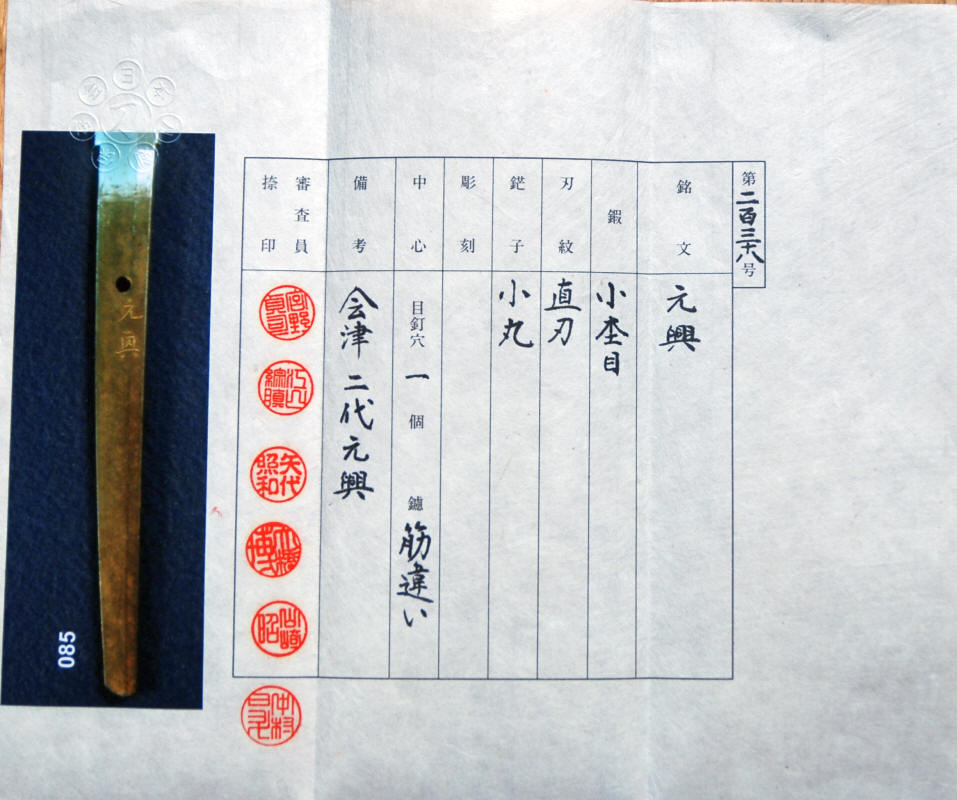 第二百三十八号
銘文
元興
鍜
小杢目
刃紋
直刃
鋩子
小丸
彫刻
中心
目釘穴 一 個 鑢 筋違い
備考
会津 二代元興
審査員
捺印
矢代
照和
山崎
昭
中村
元興
085